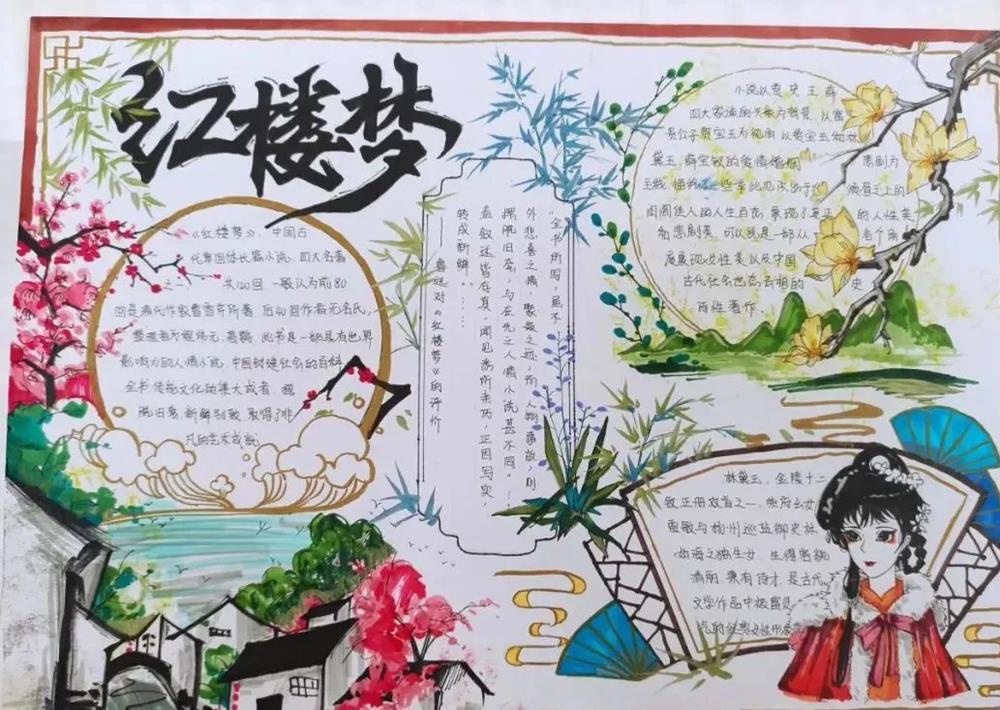 红楼梦
《红楼梦》，中国古
代章回体长篇小说，四大名著
之一，共120回 一般认为前80
回是清代作家曹雪芹所著 后40回作者无名氏，
整理者为程伟元、高鹗，此书是一部具有世界
影响力的人情小说，中国封建社会的百科
全书 传统文化的集大成者 摆
脱旧套 新鲜别致 取得了非
凡的艺术成就
“全书所写，虽不
外悲喜之情，聚散之迹，而人物事故，则
摆脱旧套，与在先之人情小说甚不同。…
盖叙述皆存真，闻见悉所亲历，正因写实，
转成新鲜。……
——鲁迅对《红楼梦》的评价
小说以贾 史 王 薛
四大家族的兴衰为背景，以富
贵公子贾宝玉为视角 以贾宝玉和林
黛玉、薛宝钗的爱情婚姻 悲剧为
主线，描绘了一些举止见识出于 须眉之上的
闺阁佳人的人生百态，展现了真正 的人性美
和悲剧美 可以说是一部从 各个角
度展现女性美以及中国
古代社会世态百相的 史
百性著作.
林黛玉，金陵十二
钗正册双首之一，荣府幺女
贾敏与扬州巡盐御史林
如海之独生女 生得容貌
清丽 兼有诗才 是古代
文学作品中极富灵
气的经典女性形象